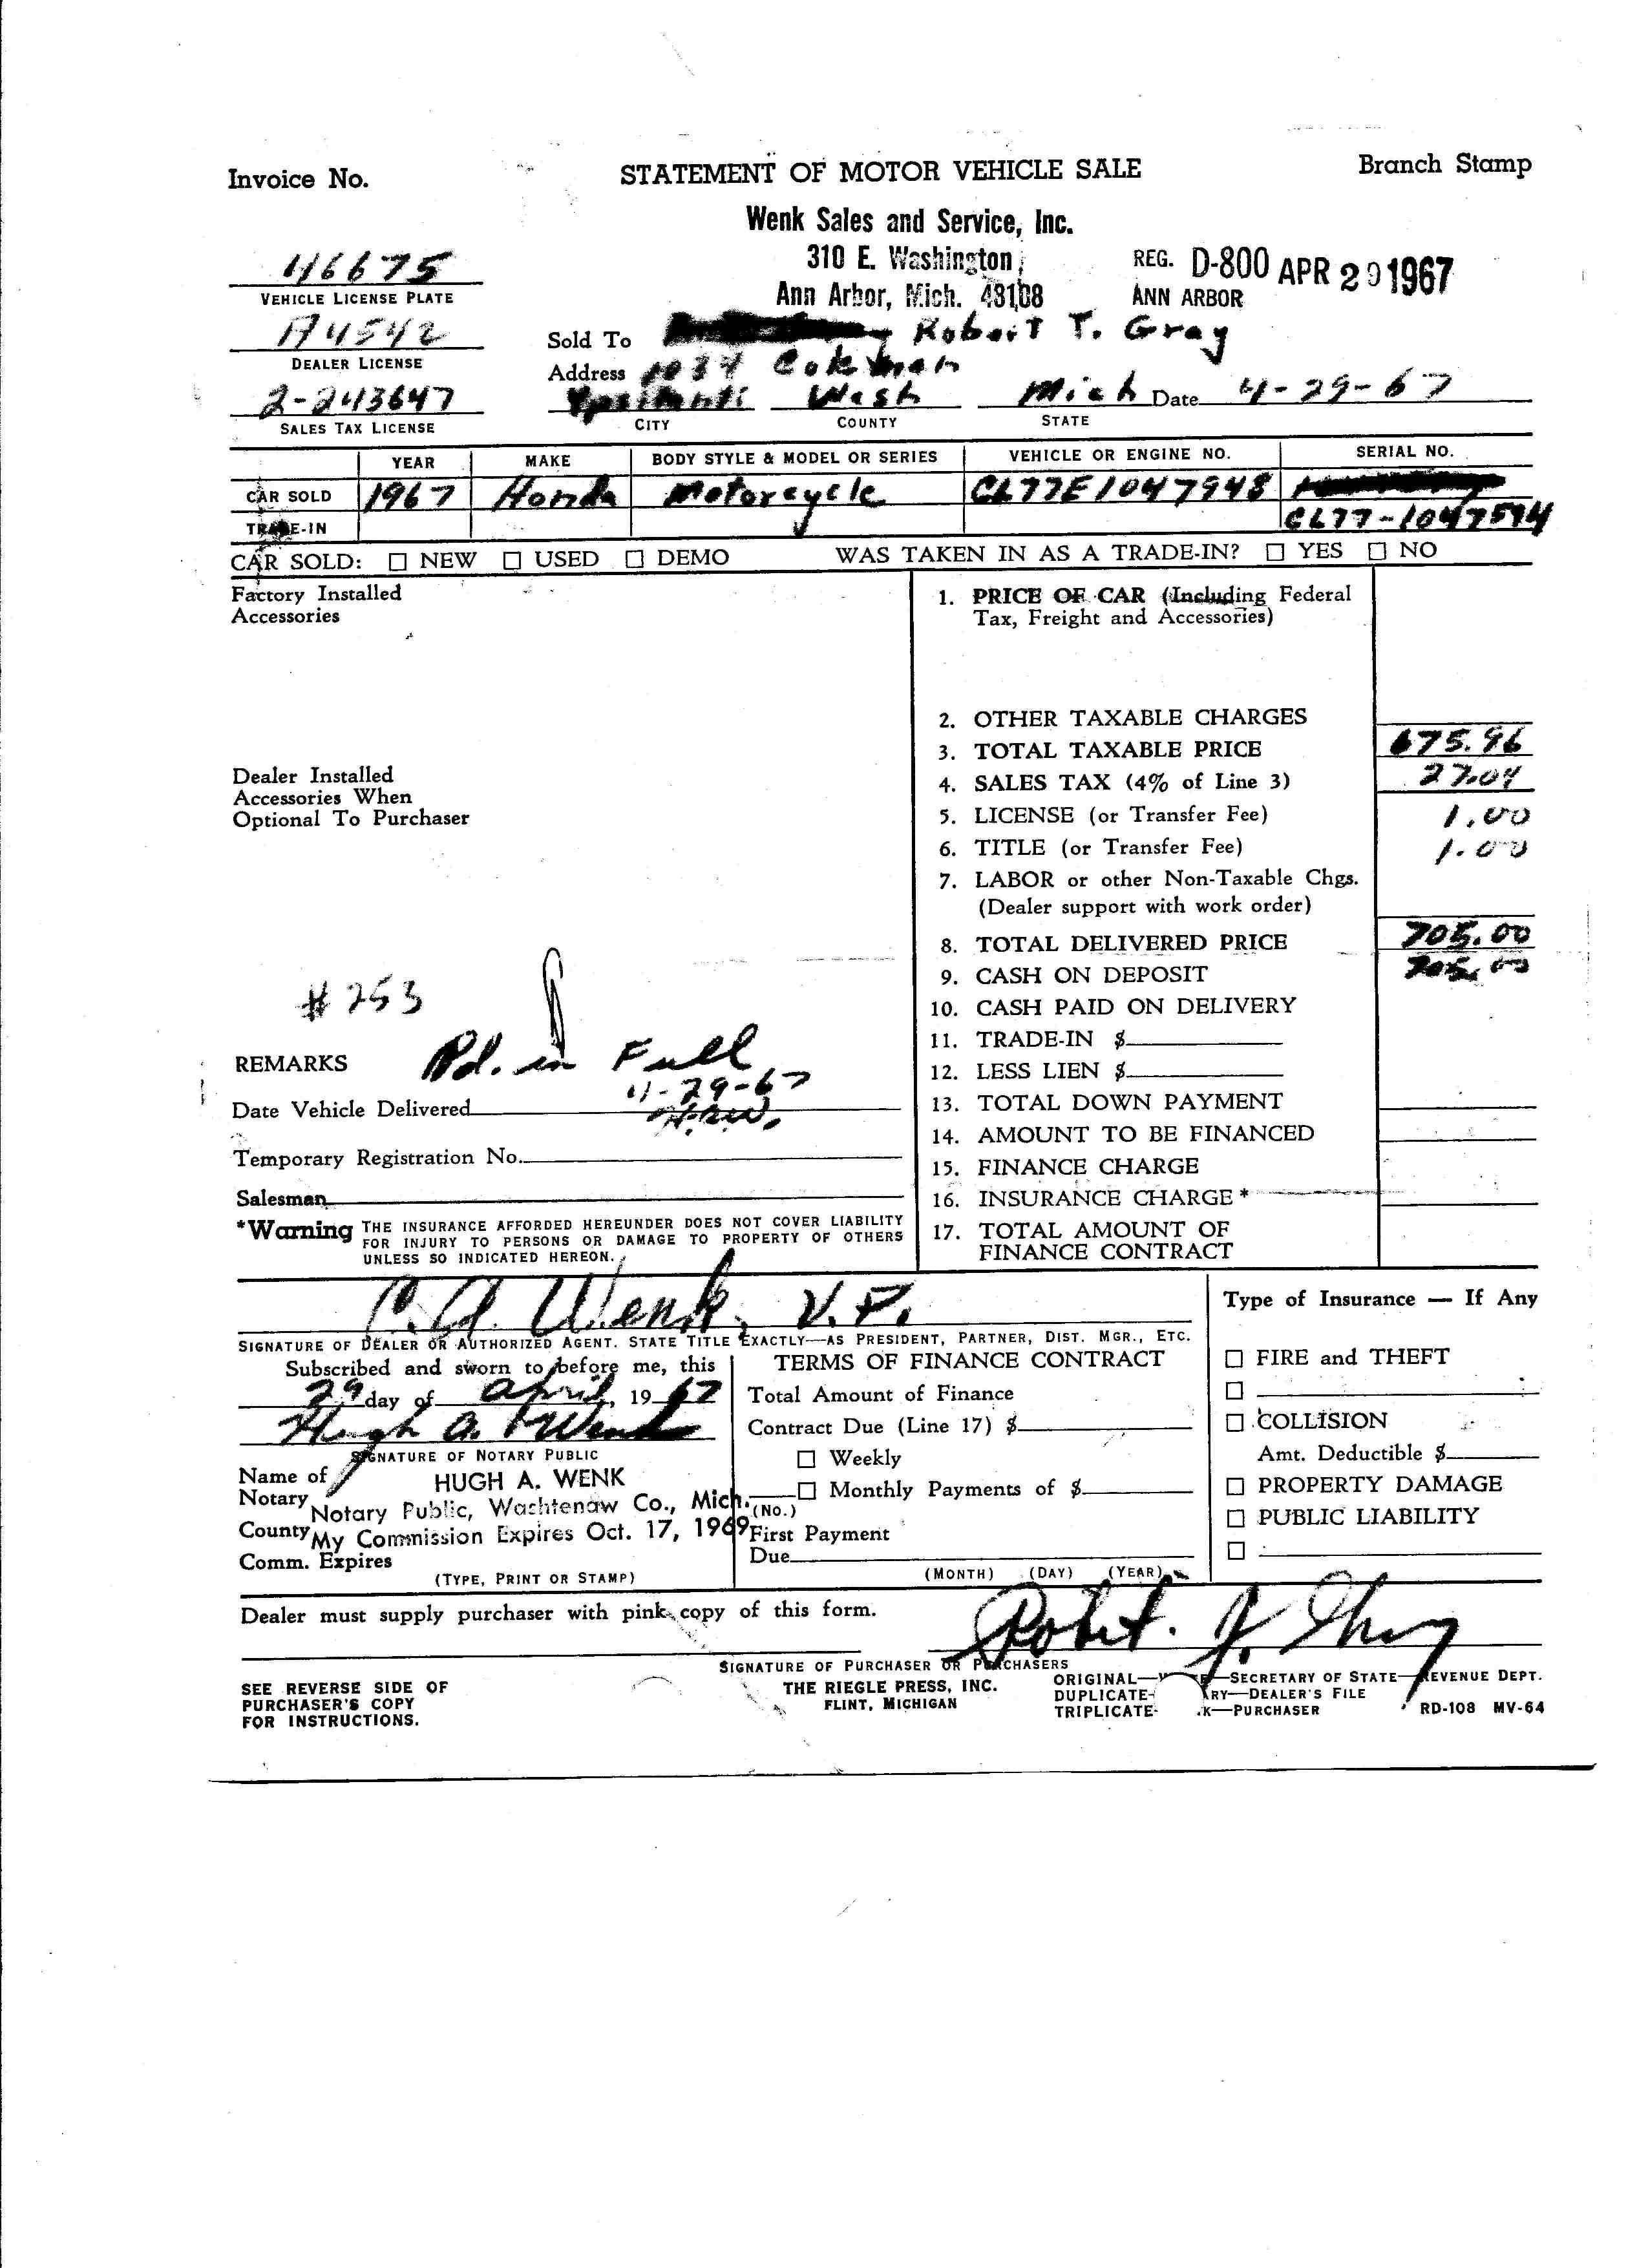 Invoice No.
STATEMENT OF MOTOR VEHICLE SALE
Branch Stamp
Wenk Sales and Service, Inc.
310 E. Washington
Ann Arbor, Mich. 48108
REG. D-800 APR 29 1967
ANN ARBOR
46675
VEHICLE LICENSE PLATE
A4542
DEALER LICENSE
2-243647
SALES TAX LICENSE
Sold To Robert T. Gray
Address 1034
Ypsilanti Wash Mich Date 4-29-67
CITY COUNTY STATE
YEAR MAKE BODY STYLE & MODEL OR SERIES VEHICLE OR ENGINE NO. SERIAL NO.
CAR SOLD 1967 Honda Motorcycle CL77E1047948
TRADE-IN CL77-1047594
CAR SOLD: ☐ NEW ☐ USED ☐ DEMO WAS TAKEN IN AS A TRADE-IN? ☐ YES ☐ NO
Factory Installed
Accessories
Dealer Installed
Accessories When
Optional To Purchaser
#253
REMARKS Pd. in Full
4-29-67
Date Vehicle Delivered H.A.W.
Temporary Registration No.
Salesman
*Warning THE INSURANCE AFFORDED HEREUNDER DOES NOT COVER LIABILITY
FOR INJURY TO PERSONS OR DAMAGE TO PROPERTY OF OTHERS
UNLESS SO INDICATED HEREON.
1. PRICE OF CAR (Including Federal
Tax, Freight and Accessories)
2. OTHER TAXABLE CHARGES
3. TOTAL TAXABLE PRICE 675.96
4. SALES TAX (4% of Line 3) 27.04
5. LICENSE (or Transfer Fee) 1.00
6. TITLE (or Transfer Fee) 1.00
7. LABOR or other Non-Taxable Chgs.
(Dealer support with work order)
8. TOTAL DELIVERED PRICE 705.00
9. CASH ON DEPOSIT 705.00
10. CASH PAID ON DELIVERY
11. TRADE-IN $
12. LESS LIEN $
13. TOTAL DOWN PAYMENT
14. AMOUNT TO BE FINANCED
15. FINANCE CHARGE
16. INSURANCE CHARGE *
17. TOTAL AMOUNT OF
FINANCE CONTRACT
C. A. Wenk, V.P.
SIGNATURE OF DEALER OR AUTHORIZED AGENT. STATE TITLE EXACTLY—AS PRESIDENT, PARTNER, DIST. MGR., ETC.
Subscribed and sworn to before me, this
29 day of April, 1967
Hugh A. Wenk
SIGNATURE OF NOTARY PUBLIC
Name of HUGH A. WENK
Notary Notary Public, Washtenaw Co., Mich.
County My Commission Expires Oct. 17, 1969
Comm. Expires
(TYPE, PRINT OR STAMP)
TERMS OF FINANCE CONTRACT
Total Amount of Finance
Contract Due (Line 17) $
☐ Weekly
☐ Monthly Payments of $
(No.)
First Payment
Due
(MONTH) (DAY) (YEAR)
Type of Insurance — If Any
☐ FIRE and THEFT
☐
☐ COLLISION
Amt. Deductible $
☐ PROPERTY DAMAGE
☐ PUBLIC LIABILITY
☐
Dealer must supply purchaser with pink copy of this form.
Robert T. Gray
SIGNATURE OF PURCHASER OR PURCHASERS
SEE REVERSE SIDE OF
PURCHASER'S COPY
FOR INSTRUCTIONS.
THE RIEGLE PRESS, INC.
FLINT, MICHIGAN
ORIGINAL— —SECRETARY OF STATE—REVENUE DEPT.
DUPLICATE- RY—DEALER'S FILE
TRIPLICATE- K—PURCHASER
RD-108 MV-64